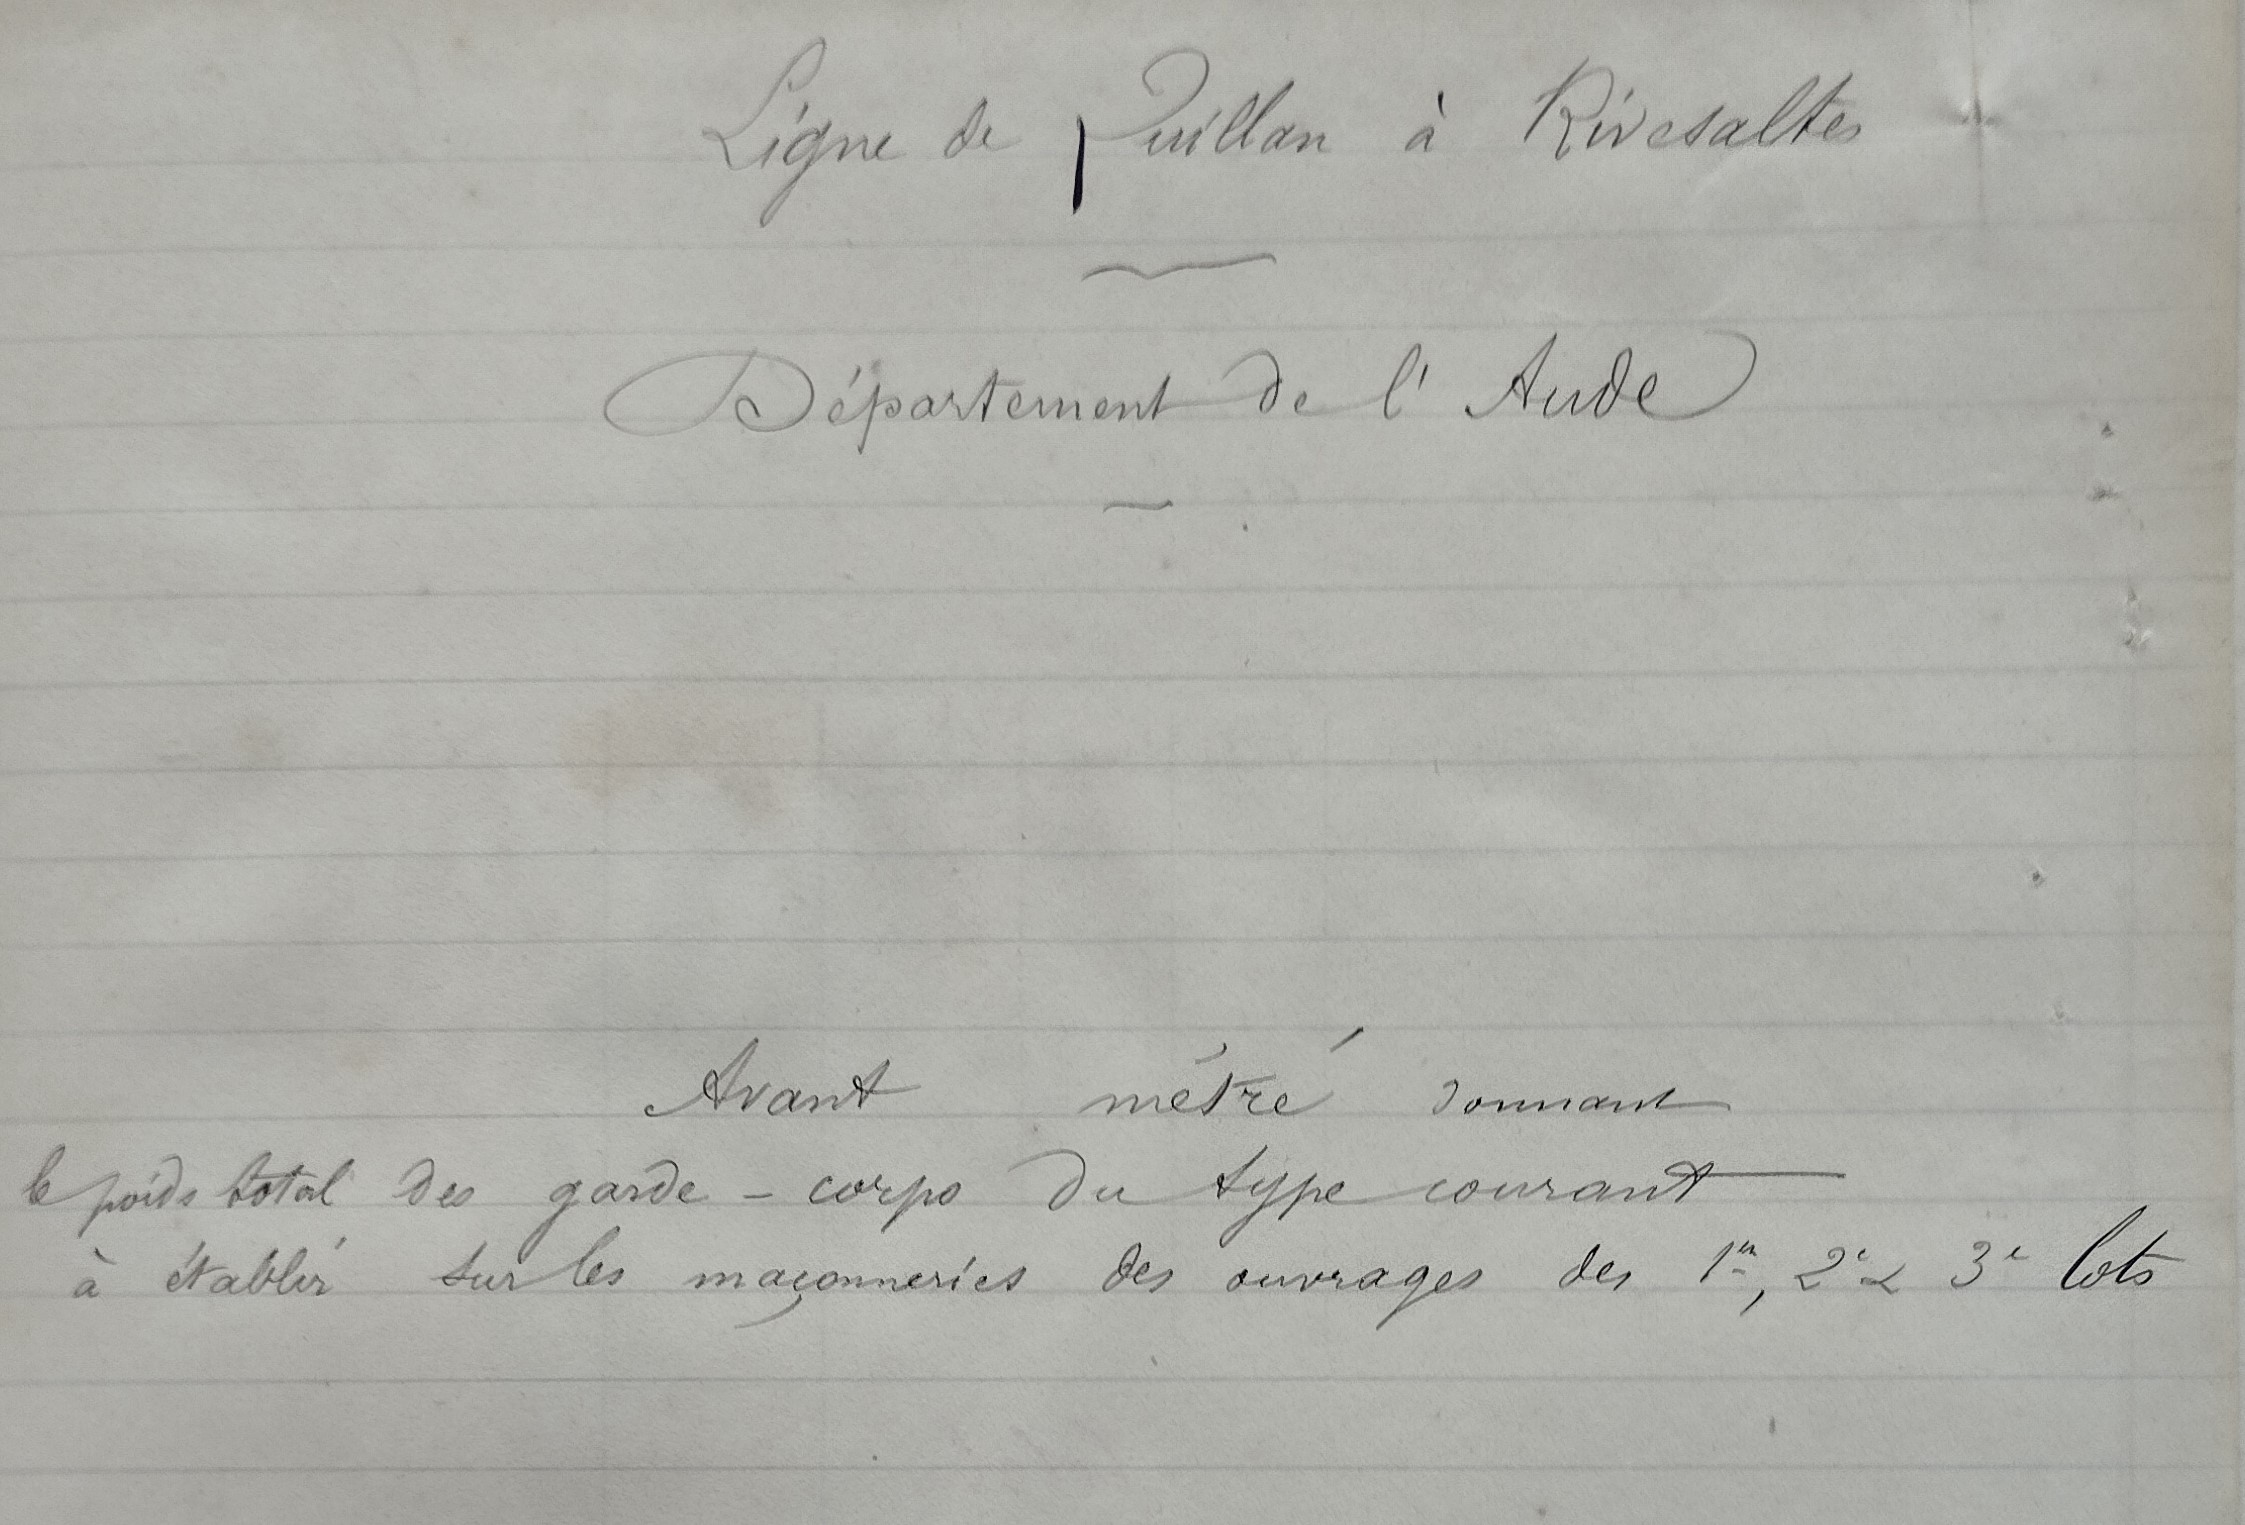 Ligne de Quillan à Rivesaltes
Département de l'Aude
Avant métré donnant
le poids total des garde-corps du type courant
à établir sur les maçonneries des ouvrages des 1er, 2e & 3e lots